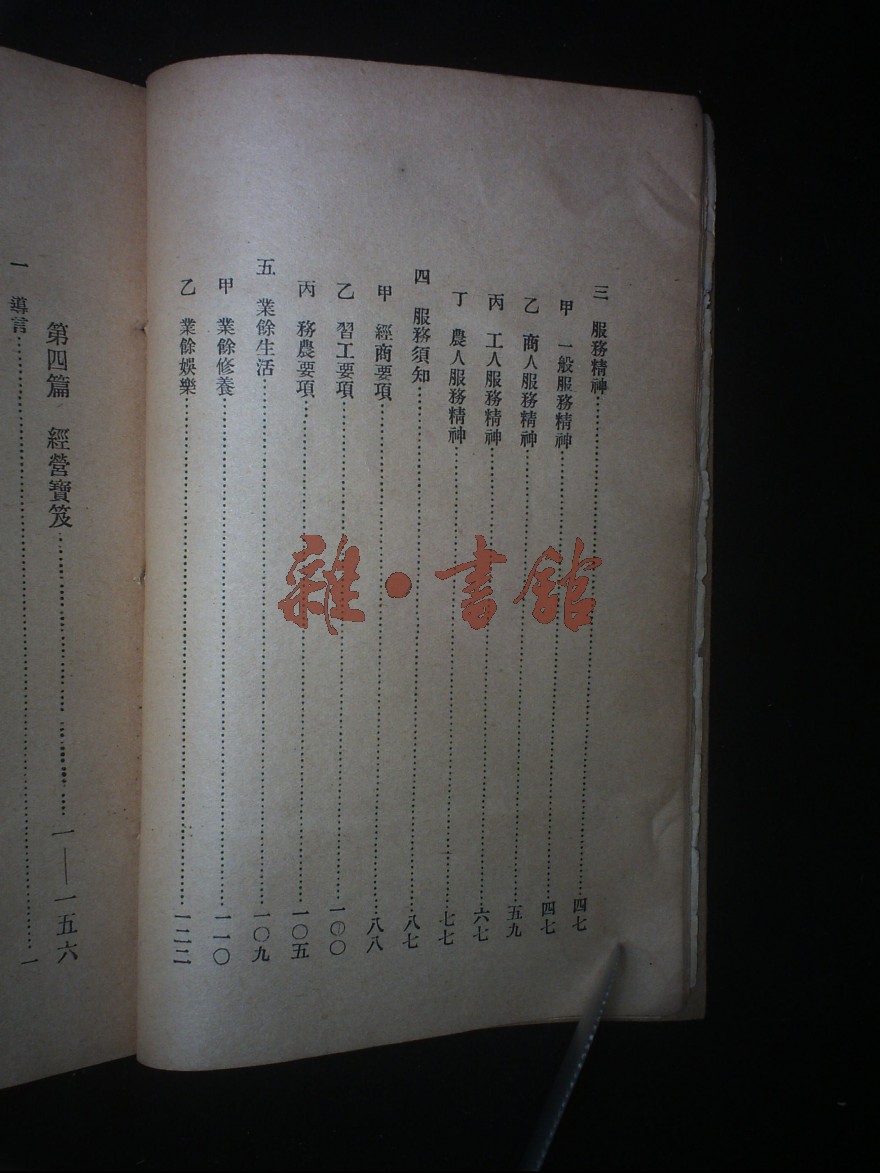 三 服務精神……四七
甲 一般服務精神……四七
乙 商人服務精神……五九
丙 工人服務精神……六七
丁 農人服務精神……七七
四 服務須知……八七
甲 經商要項……八八
乙 習工要項……一〇〇
丙 務農要項……一〇五
五 業餘生活……一〇九
甲 業餘修養……一一〇
乙 業餘娛樂……一二二
第四篇 經營寶笈……一—一五六
一 導言……一
雜·書館